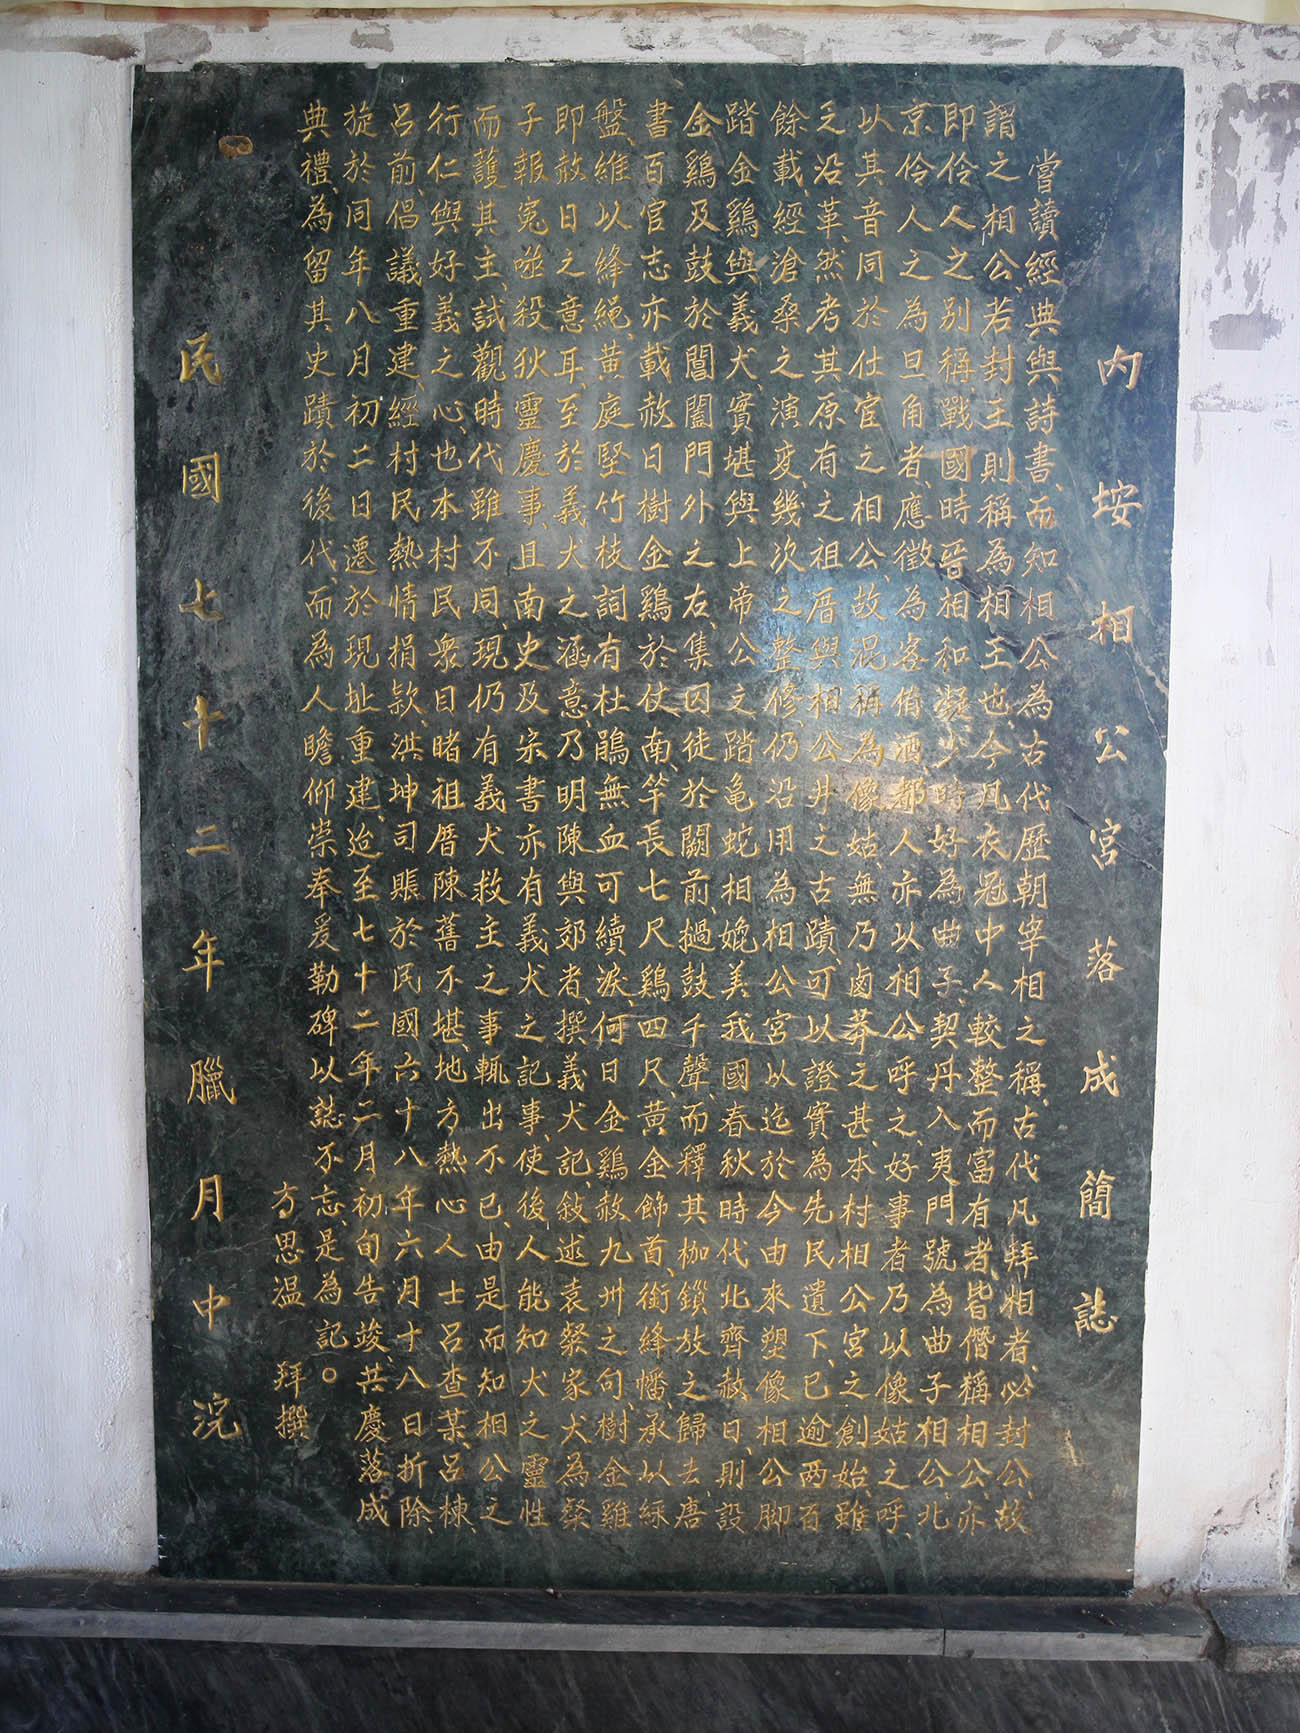 內垵相公宮落成簡誌
嘗讀經典與詩書、而知相公為古代歷朝宰相之稱、古代凡拜相者、必封公、故
謂之相公、若封王則稱為相王也、今凡衣冠中人較整而富有者、皆僭稱相公、亦
即伶人之別稱、戰國時晉相和凝、少時好為曲子、契丹入夷門號為曲子相公、北
京伶人之為旦角者、應徵為客侑酒、都人亦以相公呼之、好事者乃以像姑之呼、
以其音同於仕宦之相公、故混稱為像姑、無乃鹵莽之甚、本村相公宮之創始、雖
乏沿革、然考其原有之祖厝與相公井之古蹟、可以證實為先民遺下、已逾兩百
餘載、經滄桑之演変、幾次之整修、仍沿用為相公宮以迄於今由來塑像相公脚
踏金鷄與義犬、實堪與上帝公之踏亀蛇相媲美我國春秋時代北齊赦日、則設
金鷄及鼓於閶闔門外之右、集囚徒於闕前、撾鼓千聲、而釋其枷鎖放之歸去、唐
書百官志亦載赦日樹金鷄於仗南、竿長七尺鷄四尺、黃金飾首、銜絳幡、承以綵
盤、維以絳繩、黃庭堅竹枝詞有杜鵑無血可續淚、何日金鷄赦九州之句、樹金雞
即赦日之意耳、至於義犬之涵意、乃明陳與郊者、撰義犬記、敍述袁粲家犬為粲
子報寃噬殺狄靈慶事、且南史及宋書亦有義犬之記事、使後人能知犬之靈性
而護其主、試觀時代雖不同、現仍有義犬救主之事輒出不已、由是而知相公之
行仁與好義之心、也本村民衆目睹祖厝陳舊不堪、地方熱心人士呂查某、呂棟、
呂前、倡議重建、經村民熱情捐款、洪坤司賬於民國六十八年六月十八日折除、
旋於同年八月初二日遷於現址重建、迨至七十二年二月初旬告竣、共慶落成
典禮、為留其史蹟於後代、而為人瞻仰崇奉爰勒碑以誌不忘、是為記。
方思溫　拜撰
民國七十二年臘月中浣